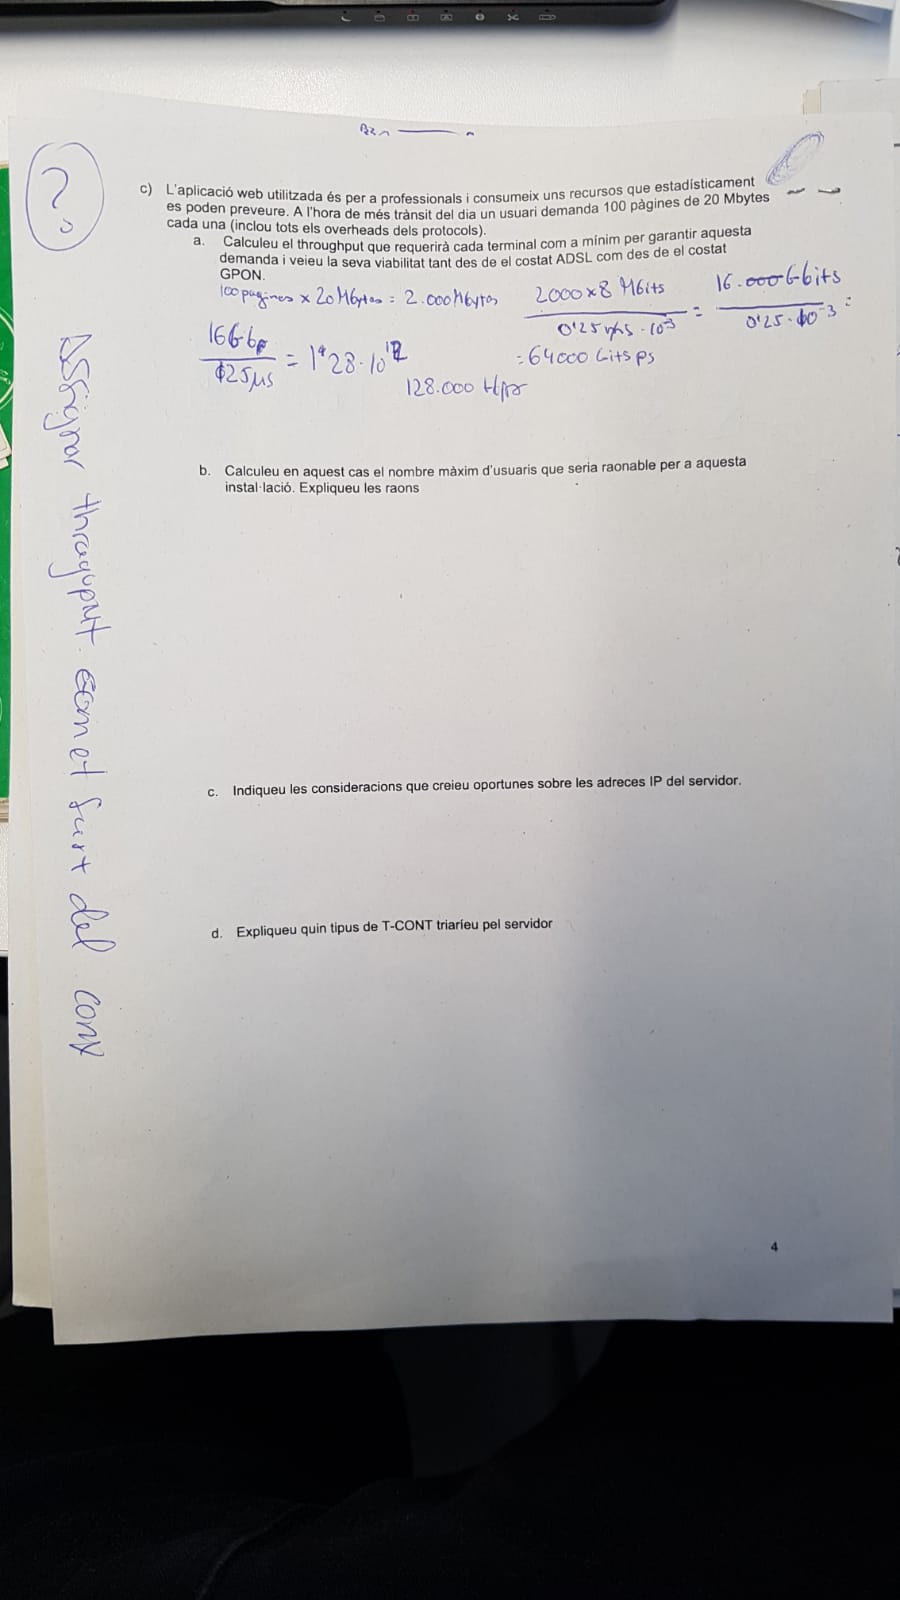 ?
c) L'aplicació web utilitzada és per a professionals i consumeix uns recursos que estadísticament
es poden preveure. A l'hora de més trànsit del dia un usuari demanda 100 pàgines de 20 Mbytes
cada una (inclou tots els overheads dels protocols).
a. Calculeu el throughput que requerirà cada terminal com a mínim per garantir aquesta
demanda i veieu la seva viabilitat tant des de el costat ADSL com des de el costat
GPON.
100 pagines x 20 Mbytes = 2.000 Mbytes
2000x8 Mbits
0'25 · 10⁻³
=
16.000 Gbits
0'25·10⁻³
=
= 64000 Gits ps
16Gb
125µs
= 1'28·10¹²
128.000
b. Calculeu en aquest cas el nombre màxim d'usuaris que seria raonable per a aquesta
instal·lació. Expliqueu les raons
c. Indiqueu les consideracions que creieu oportunes sobre les adreces IP del servidor.
d. Expliqueu quin tipus de T-CONT triaríeu pel servidor
4
Assignar del